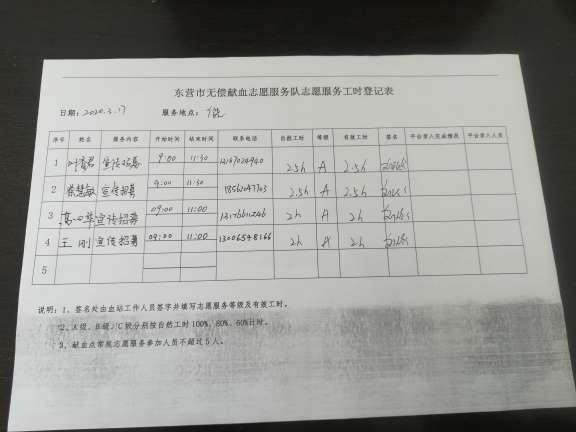 东营市无偿献血志愿服务队志愿服务工时登记表
日期：2020.3.17 服务地点：
序号 姓名 服务内容 开始时间 结束时间 联系电话 自然工时 等级 有效工时 签名 平台录入完成情况 平台录入人员
1 宣传招募 9:00 11:30 2.5h A 2.5h
2 徐慧敏 宣传招募 9:00 11:30 2.5h A 2.5h
3 宣传招募 09:00 11:00 2h A 2h
4 王刚 宣传招募 09:00 11:00 13006548166 2h A 2h
5
说明：1、签名处由血站工作人员签字并填写志愿服务等级及有效工时。
2、A级、B级、C级分别按自然工时100%、80%、60%计时。
3、献血点常规志愿服务参加人员不超过5人。